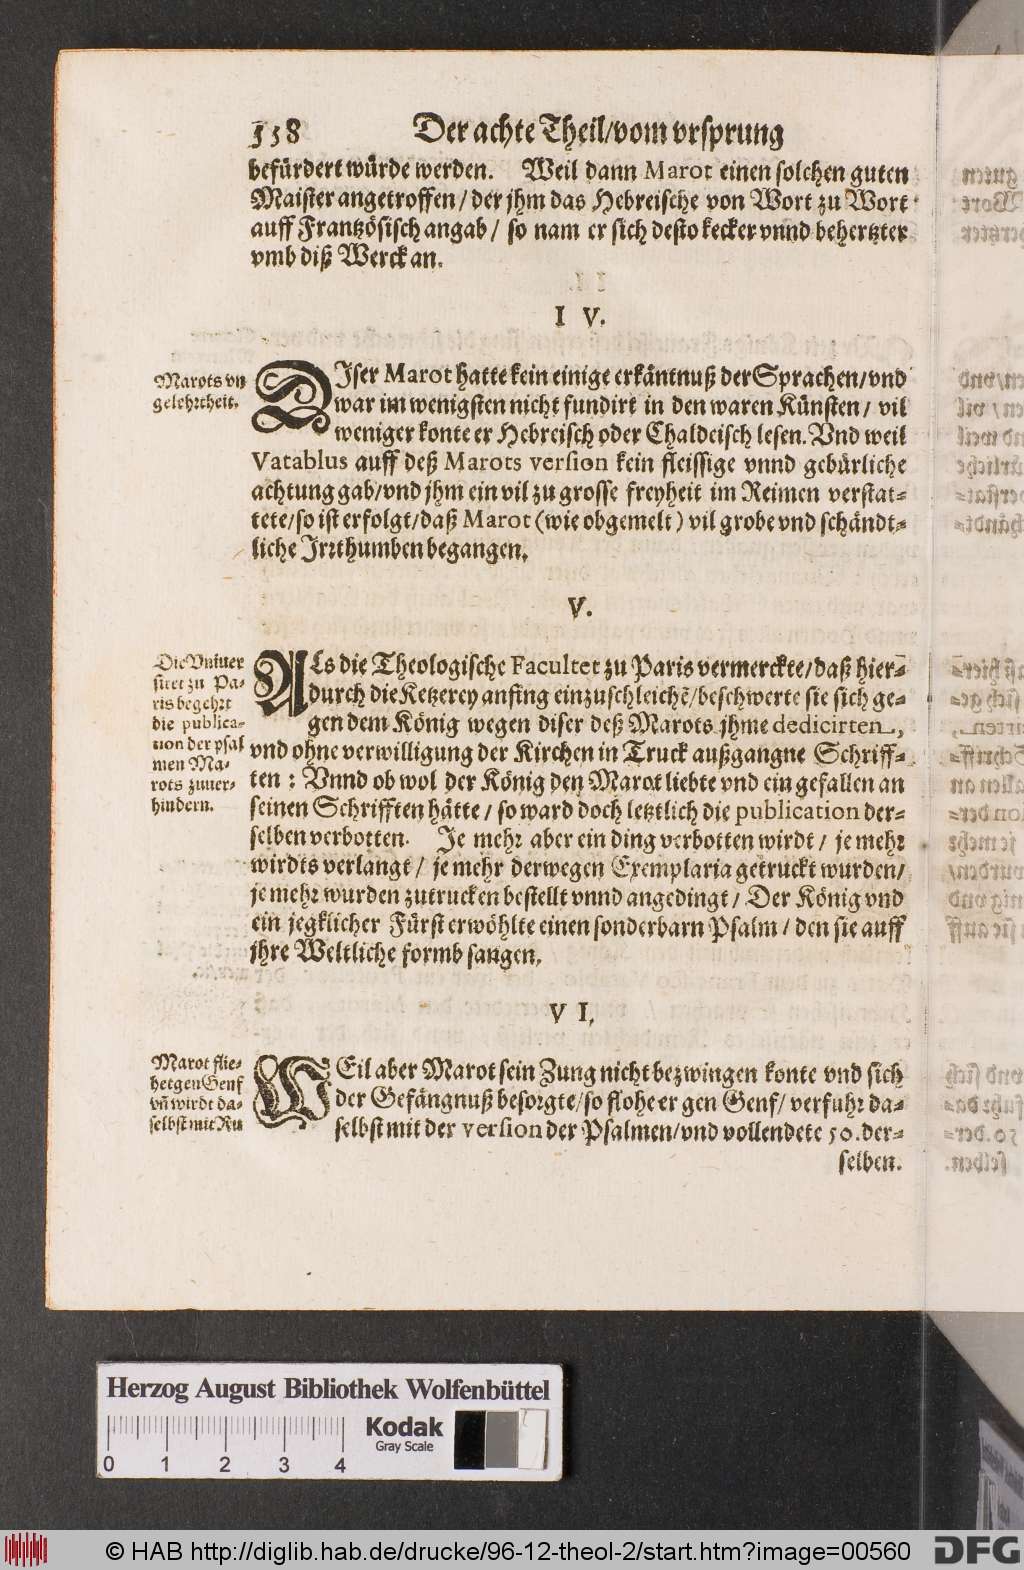 538 Der achte Theil/vom vrsprung
befürdert würde werden. Weil dann Marot einen solchen guten
Maister angetroffen/der jhm das Hebreische von Wort zu Wort
auff Frantzösisch angab/ so nam er sich desto kecker vnnd behertzter
vmb diß Werck an.
I V.
Marots vn
gelehrtheit.
DIser Marot hatte kein einige erkäntnuß der Sprachen/vnd
war im wenigsten nicht fundirt in den waren Künsten/ vil
weniger konte er Hebreisch oder Chaldeisch lesen. Vnd weil
Vatablus auff deß Marots version kein fleissige vnnd gebürliche
achtung gab/vnd jhm ein vil zu grosse freyheit im Reimen verstat-
tete/so ist erfolgt/daß Marot (wie obgemelt) vil grobe vnd schändt-
liche Irrthumben begangen.
V.
Die Vniuer
sitet zu Pa-
ris begehrt
die publica-
tion der psal
men Ma-
rots zuuer-
hindern.
ALs die Theologische Facultet zu Paris vermerckte/daß hier-
durch die Ketzerey anfing einzuschleichẽ/beschwerte sie sich ge-
gen dem König wegen diser deß Marots jhme dedicirten,
vnd ohne verwilligung der Kirchen in Truck außgangne Schriff-
ten: Vnnd ob wol der König den Marot liebte vnd ein gefallen an
seinen Schrifften hätte/ so ward doch letztlich die publication der-
selben verbotten. Je mehr aber ein ding verbotten wirdt/ je mehr
wirdts verlangt/ je mehr derwegen Exemplaria getruckt wurden/
je mehr wurden zutrucken bestellt vnnd angedingt/ Der König vnd
ein jegklicher Fürst erwöhlte einen sonderbarn Psalm/ den sie auff
jhre Weltliche formb sangen.
V I.
Marot flie-
het gen Genf
vñ wirdt da-
selbst mit Ru
WEil aber Marot sein Zung nicht bezwingen konte vnd sich
der Gefängnuß besorgte/so flohe er gen Genf/ verfuhr da-
selbst mit der version der Psalmen/vnd vollendete 50. der-
selben.
Herzog August Bibliothek Wolfenbüttel
Kodak
Gray Scale
0 1 2 3 4
© HAB http://diglib.hab.de/drucke/96-12-theol-2/start.htm?image=00560
DFG